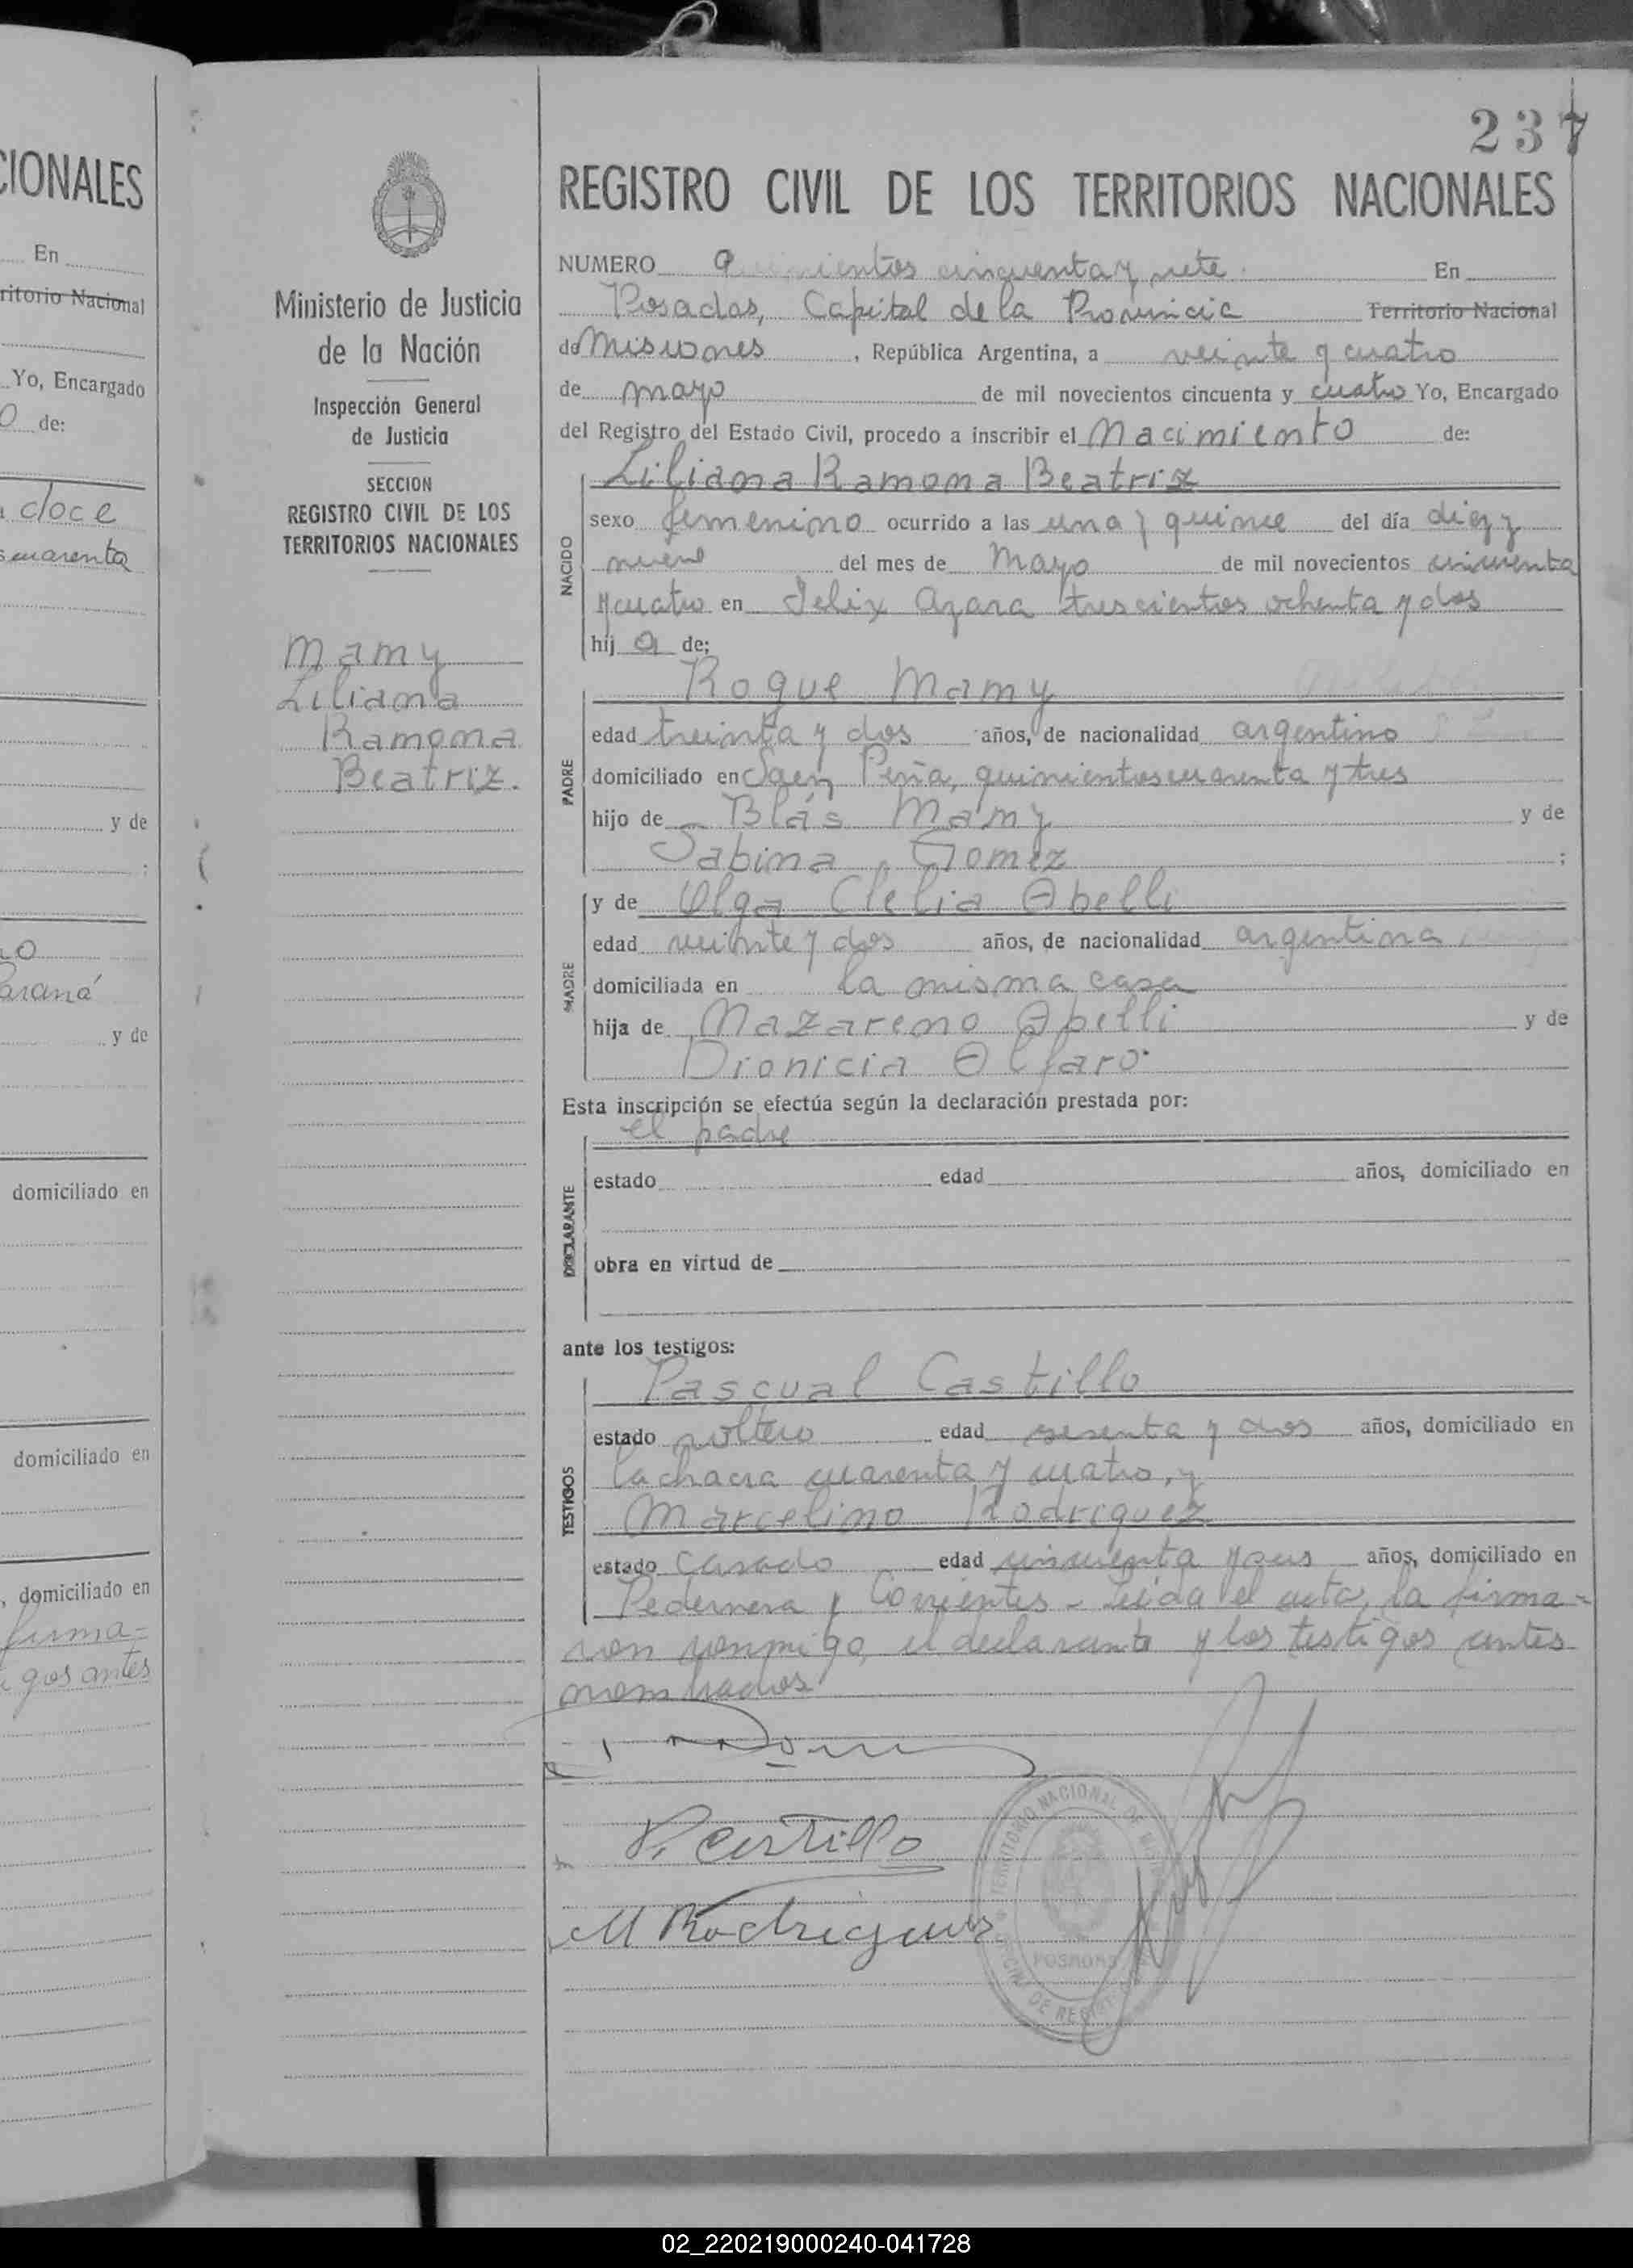 237
REGISTRO CIVIL DE LOS TERRITORIOS NACIONALES
NUMERO Quinientos cincuenta y siete En
Posadas, Capital de la Provincia Territorio Nacional
de Misiones, República Argentina, a veinte y cuatro
de mayo de mil novecientos cincuenta y cuatro Yo, Encargado
del Registro del Estado Civil, procedo a inscribir el Nacimiento de:
Liliana Ramona Beatriz
NACIDO
sexo femenino ocurrido a las una y quince del día diez y
nueve del mes de Mayo de mil novecientos cincuenta
y cuatro en Felix Azara trescientos ochenta y dos
hij a de;
PADRE
Roque Mamy
edad treinta y dos años, de nacionalidad argentino
domiciliado en Saen Peña, quinientos cuarenta y tres
hijo de Blás Mamy y de
Sabina Gomez ;
MADRE
y de Olga Clelia Abelli
edad veinte y dos años, de nacionalidad argentina
domiciliada en la misma casa
hija de Nazareno Abelli y de
Dionicia Alfaro
Esta inscripción se efectúa según la declaración prestada por:
el padre
DECLARANTE
estado edad años, domiciliado en
obra en virtud de
ante los testigos:
TESTIGOS
Pascual Castillo
estado soltero edad sesenta y dos años, domiciliado en
la chacra cuarenta y cuatro, y
Marcelino Rodriguez
estado Casado edad cincuenta y años, domiciliado en
Pedernera y Corrientes - Leida el acta, la firma-
ron conmigo, el declarante y los testigos antes
nombrados
P. Castillo
M Rodriguez
TERRITORIO NACIONAL DE MISIONES
POSADAS
Ministerio de Justicia
de la Nación
Inspección General
de Justicia
SECCION
REGISTRO CIVIL DE LOS
TERRITORIOS NACIONALES
Mamy
Liliana
Ramona
Beatriz.
CIONALES
En
ritorio Nacional
Yo, Encargado
de:
doce
cuarenta
y de
araná
y de
domiciliado en
domiciliado en
, domiciliado en
firma=
gos antes
02_220219000240-041728